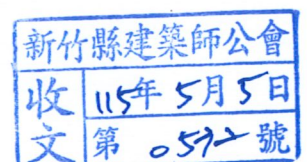 新竹縣建築師公會
收文
115年5月5日
第 0592 號